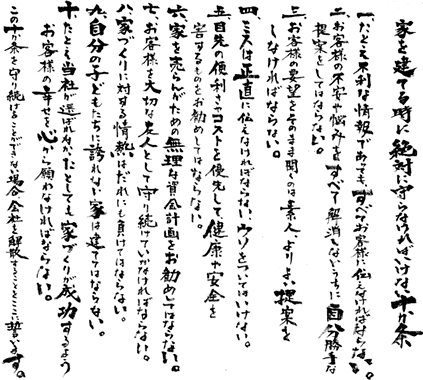 家を建てる時に絶対に守らなければいけない十か条
一、たとえ不利な情報であってもすべてお客様に伝えなければならない。
二、お客様の不安や悩みをすべて解消しないうちに自分勝手な
提案をしてはならない。
三、お客様の要望をそのまま聞くのは素人、よりよい提案を
しなければならない。
四、ミスは正直に伝えなければならない、ウソをついてはいけない。
五、目先の便利さやコストを優先して、健康や安全を
害するものをお勧めしてはならない。
六、家を売らんがための無理な資金計画をお勧めしてはならない。
七、お客様を大切な友人として守り続けていかなければならない。
八、家づくりに対する情熱はだれにも負けてはならない。
九、自分の子どもたちに誇れない家は建ててはならない。
十、たとえ当社が選ばれなかったとしても家づくりが成功するよう
お客様の幸せを心から願わなければならない。
この十か条を守り続けることができない場合、会社を解散することをここに誓います。